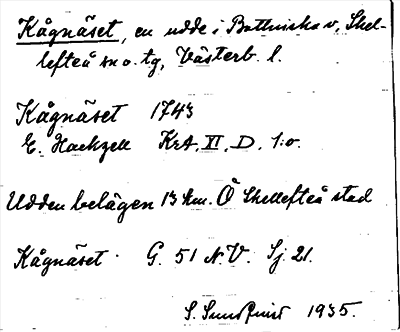 Kågnäset, en udde i Bottniska v, Skel-
lefteå sn o. tg, Västerb. l.
Kågnäset 1743
E. Hackzell KrA. XI. D. 1:o.
Udden belägen 13 km. Ö Skellefteå stad
Kågnäset. G. 51 N.V. Sj. 21.
S. Sundqvist 1935.